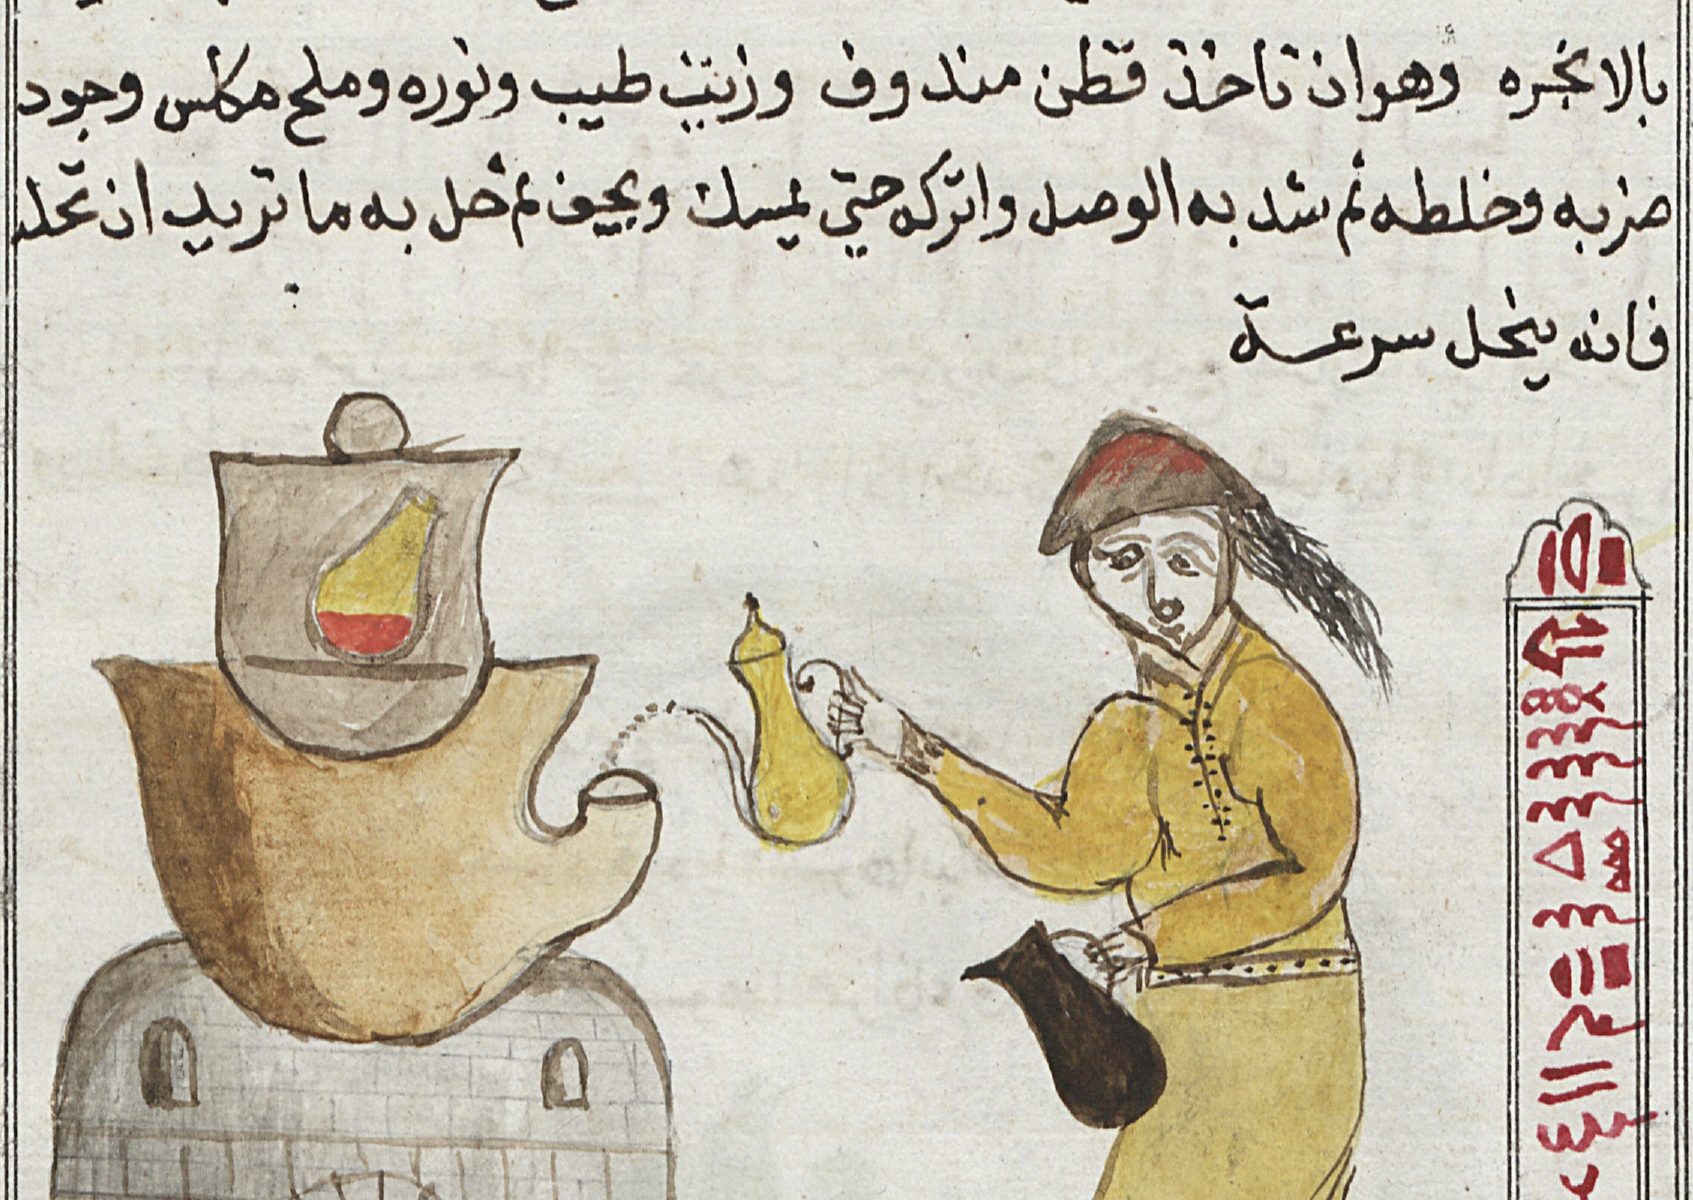 بالابخره وهو ان تاخذ قطن مندوف وزيت طيب ونوره وملح مكلس وجود
ضربه وخلطه ثم شد به الوصل واتركه حتي يمسك ويجف ثم حل به ما تريد ان تحله
فانه ينحل سرعة